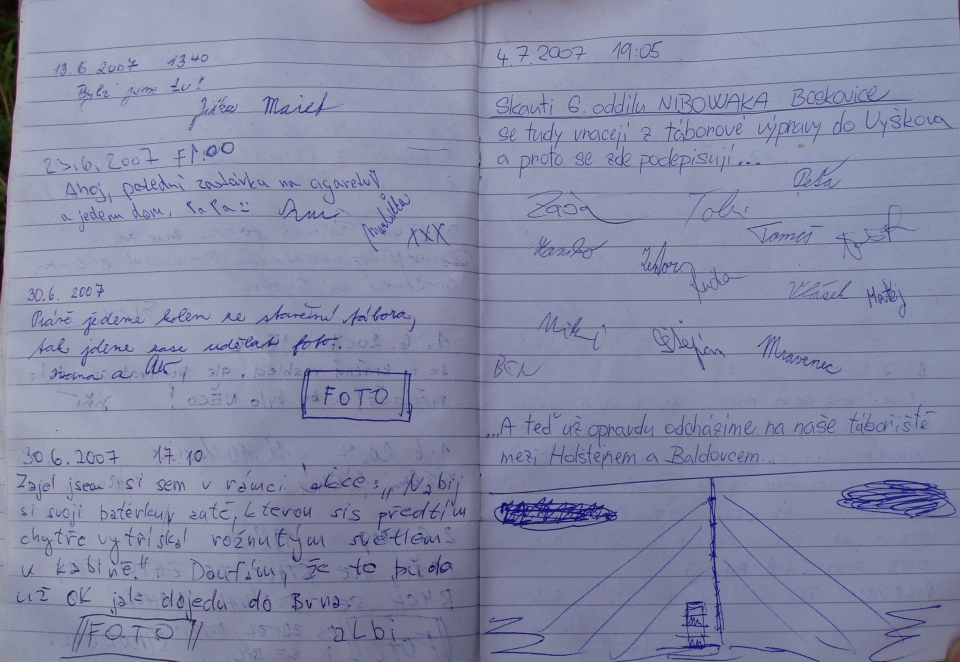 13.6.2007 1340
Byli jsme tu!
Jiřka Marek
23.6.2007
Ahoj, poslední zastávka na cigaretu
a jedem dom, PaPa
XXX
30.6. 2007
Právě jedeme kolem ze stavění tábora,
tak jdeme zase udělat foto.
a
FOTO
30.6.2007 17:10
Zajel jsem si sem v rámci akce: „Nabij
si svoji baterku v autě, kterou sis předtím
chytře vytřískal rožnutým světlem
v kabině." Doufám, že to bude
už OK jak dojedu do Brna.
FOTO albi
4.7.2007 19:05
Skauti 6. oddílu NIBOWAKA Boskovice
se tudy vracejí z táborové výpravy do Vyškova
a proto se zde podepisují...
Péťa
Tomeš
Vlášek Matěj
Štěpán Mravenec
BEN
...A teď už opravdu odcházíme na naše tábořiště
mezi Holštejnem a Baldovcem...